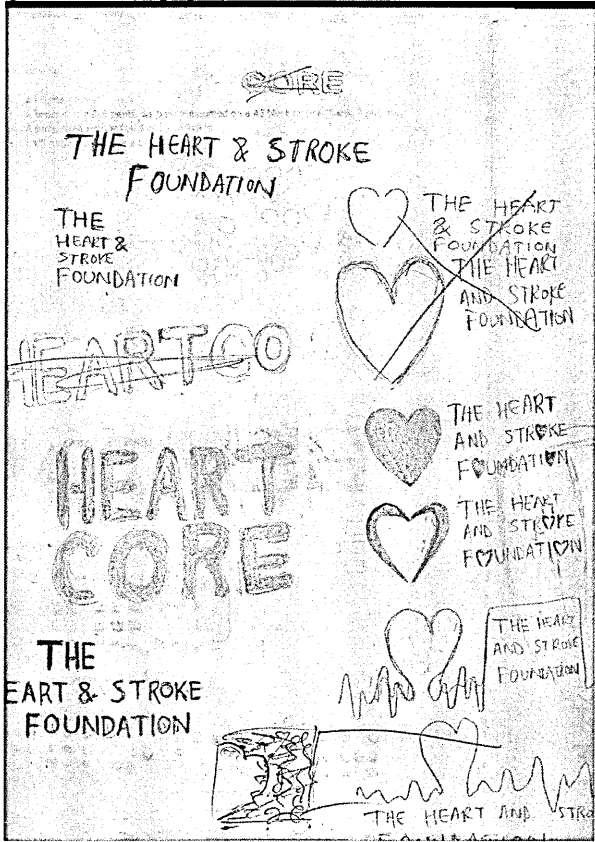 CORE
THE HEART & STROKE
FOUNDATION
THE
HEART &
STROKE
FOUNDATION
THE HEART
& STROKE
FOUNDATION
THE HEART
AND STROKE
FOUNDATION
HEARTCO
HEART
CORE
THE HEART
AND STROKE
FOUMDATION
THE HEART
AND STROKE
FOUNDATION
THE HEART
AND STROKE
FOUNDATION
THE
EART & STROKE
FOUNDATION
THE HEART AND STRO